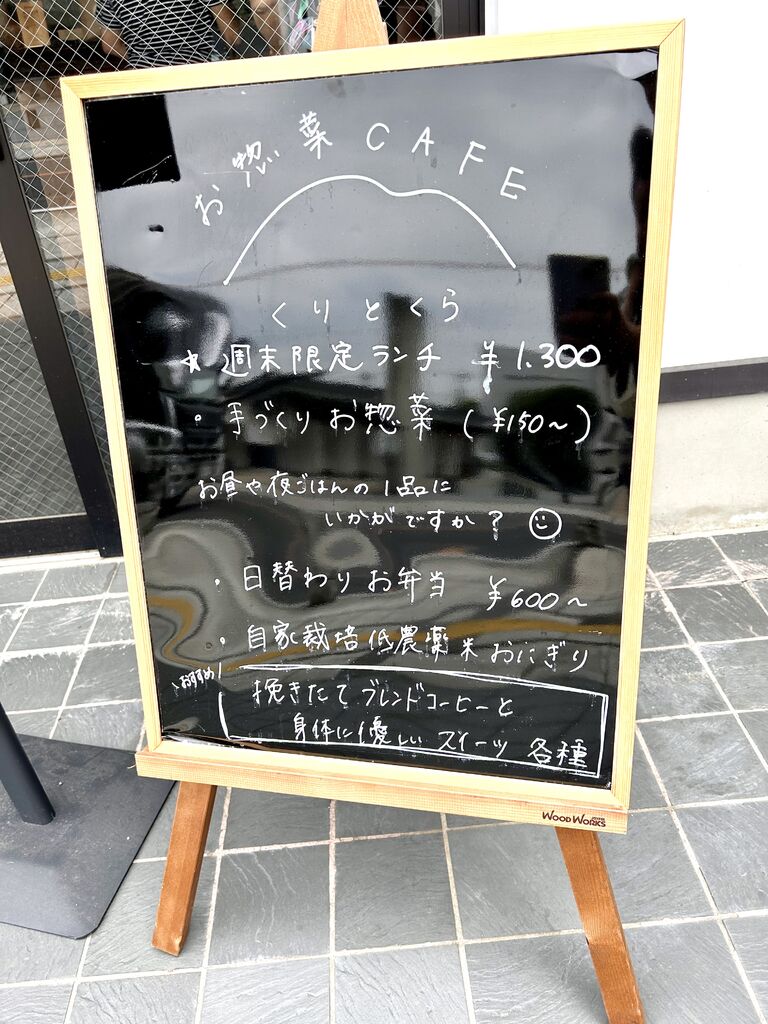 お惣菜CAFE
くりとくら
☆ 週末限定ランチ ¥1.300
・手づくりお惣菜 (¥150〜)
お昼や夜ごはんの1品に
いかがですか? ☺
・日替わりお弁当 ¥600〜
・自家栽培低農薬米おにぎり
おすすめ!
挽きたてブレンドコーヒーと
身体に優しいスイーツ 各種
WOOD WORKS